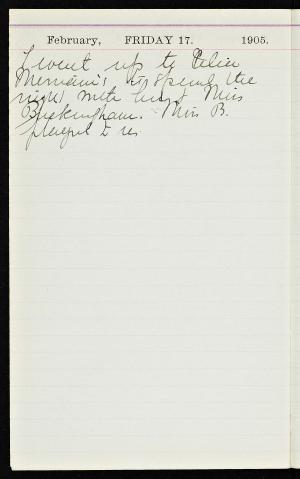 February, FRIDAY 17. 1905.
I went up to Celia
Merriam's to spend the
night with her & Miss
Buckingham. Miss B.
played to us